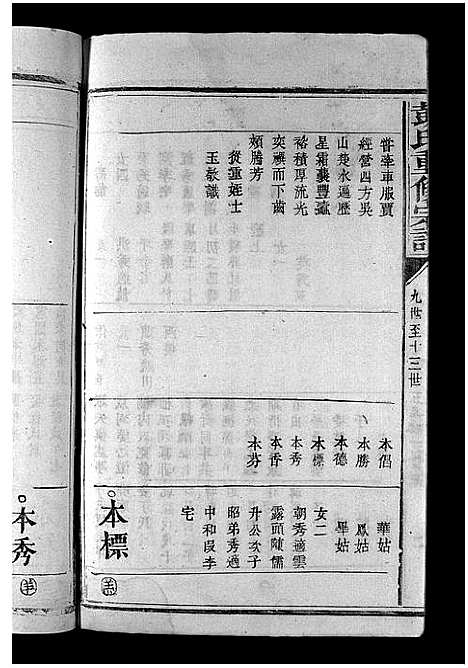 彭氏重修宗譜
九世至十三世
嘗牽車服賈
經營四方吳
山楚水遍歷
星霜囊豐
裕積厚流光
奕禩而下齒
頰騰芳
姪士
玉敬識
本侶
本勝
本德
本標
本秀
本香
本芬
華姑
鳳姑
畢姑
女二
朝秀適雲
露頭陳儒
升公次子
昭弟秀適
中和段李
宅
本標
本秀